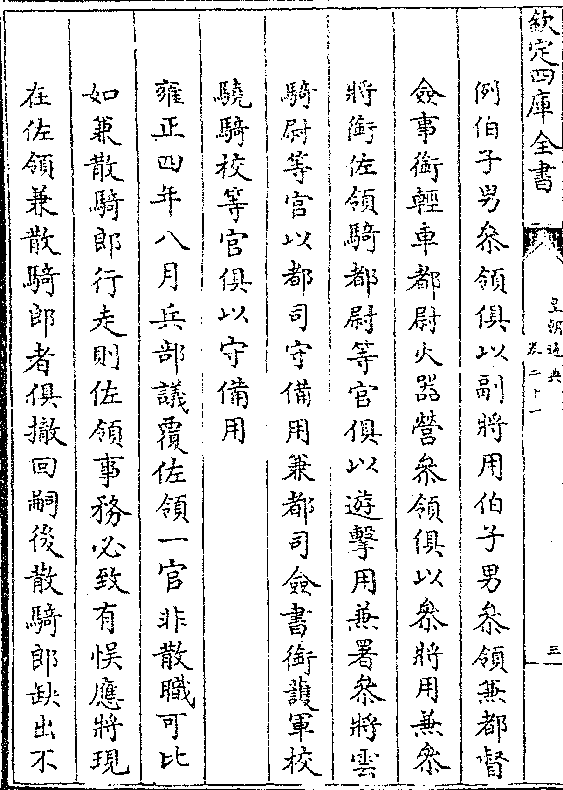 欽定四庫全書
皇朝通典
卷二十一
三
例伯子男叅領俱以副將用伯子男叅領兼都督
僉事銜輕車都尉火器營叅領俱以叅將用兼叅
將銜佐領騎都尉等官俱以遊擊用兼署叅將雲
騎尉等官以都司守備用兼都司僉書銜護軍校
驍騎校等官俱以守備用
雍正四年八月兵部議覆佐領一官非散職可比
如兼散騎郎行走則佐領事務必致有悞應將現
在佐領兼散騎郎者俱撤回嗣後散騎郎缺出不